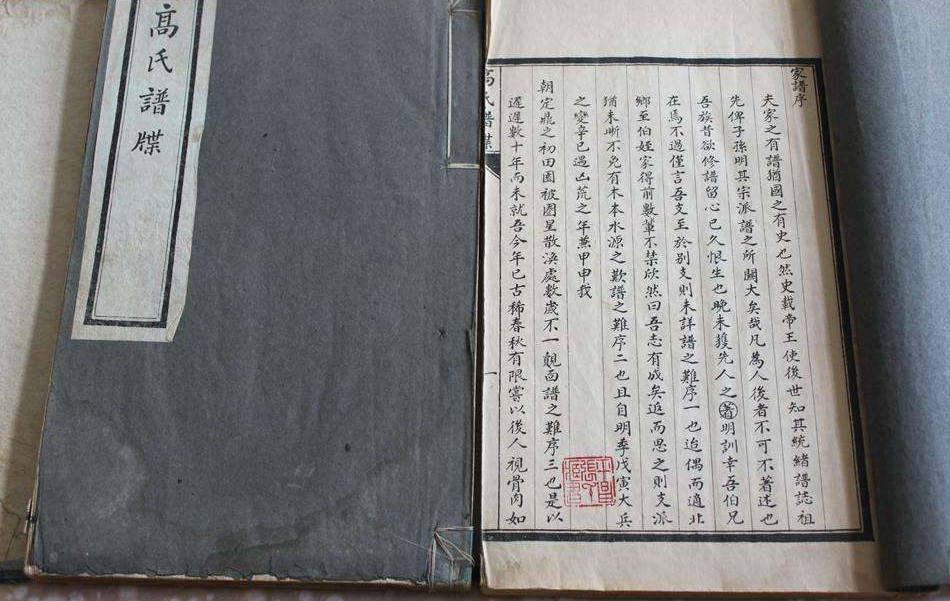 高氏譜牒
家譜序
夫家之有譜猶國之有史也然史載帝王使後世知其統緒譜誌祖
先俾子孫明其宗派譜之所關大矣哉凡為人後者不可不著述也
吾族昔欲修譜留心已久恨生也晚未獲先人之著明訓幸吾伯兄
在焉不過僅言吾支至於别支則未詳譜之難序一也迨偶而適北
鄉至伯姪家得前數輩不禁欣然曰吾志有成矣追而思之則支派
猶未晰不免有木本水源之歎譜之難序二也且自明季戊寅大兵
之變辛巳遇凶荒之年兼甲申我
朝定鼎之初田園被圈星散渙處數歲不一覿面譜之難序三也是以
遲遲數十年而未就吾今年已古稀春秋有限嘗以後人視骨肉如
高氏譜牒
一